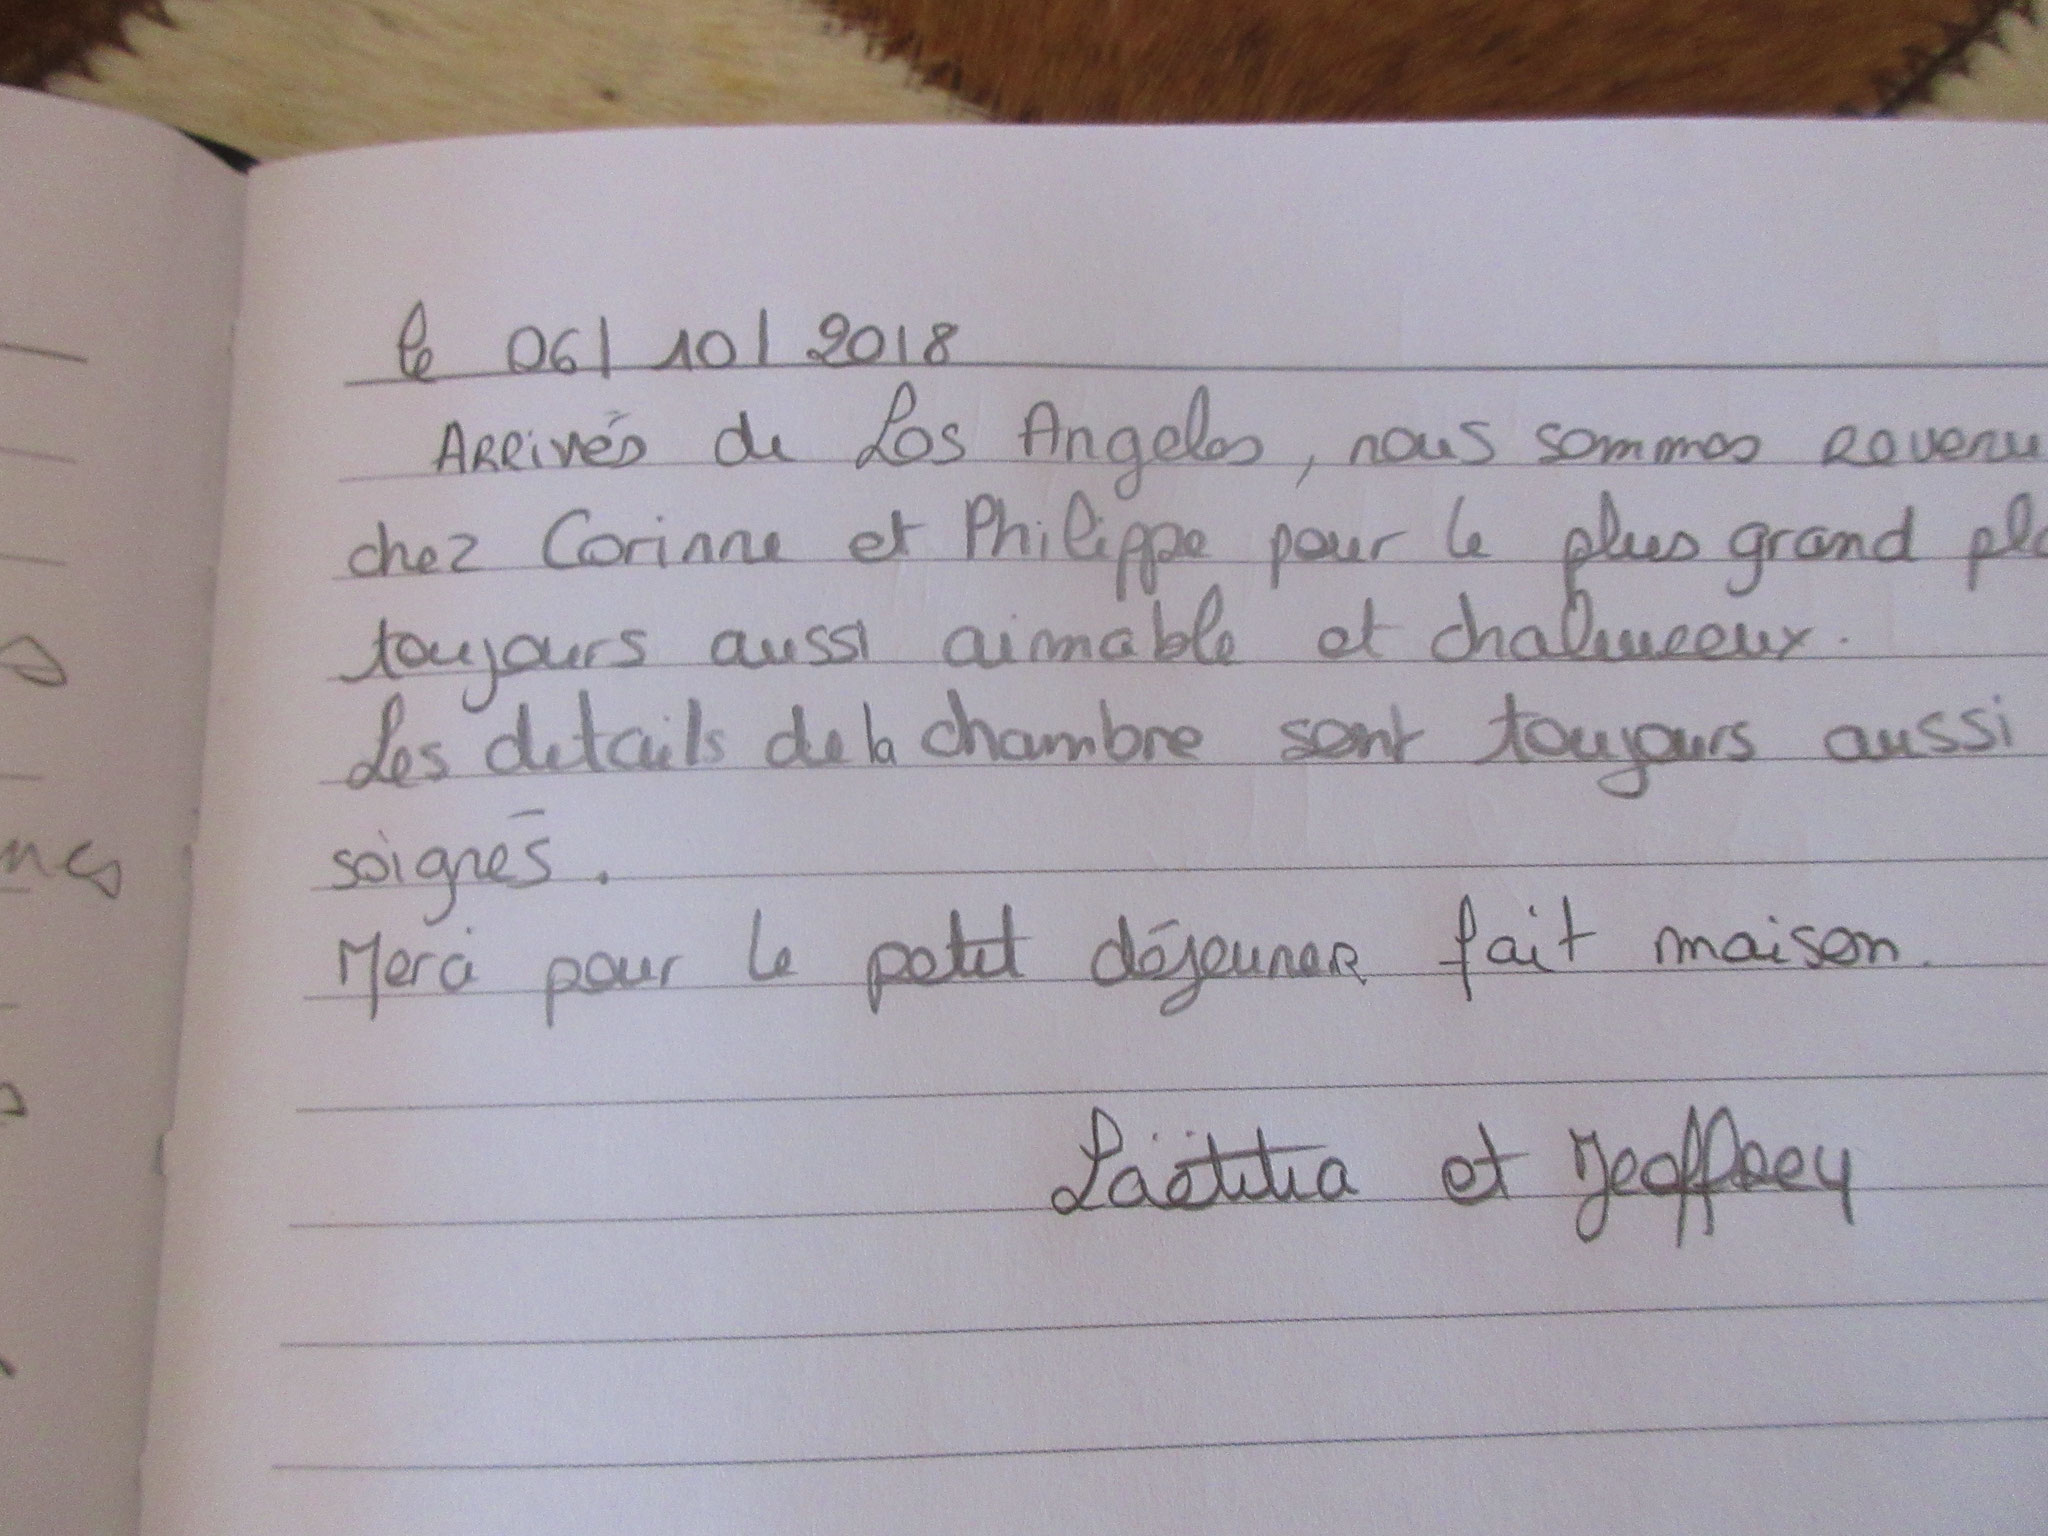 le 06/10/2018
Arrivés de Los Angeles, nous sommes revenu
chez Corinne et Philippe pour le plus grand pla
toujours aussi aimable et chaleureux.
Les détails de la chambre sont toujours aussi
soignés.
Merci pour le petit déjeuner fait maison.
Laëtitia et Jeoffrey